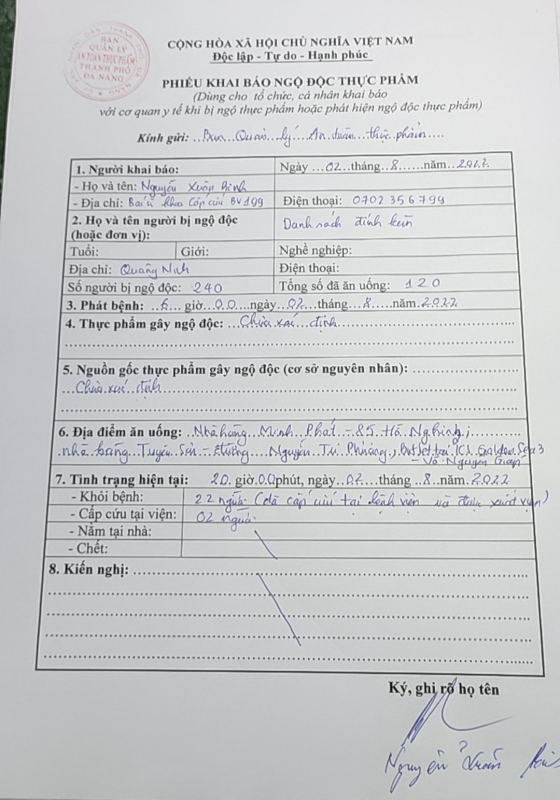 BAN
QUẢN LÝ
AN TOÀN THỰC PHẨM
THÀNH PHỐ
ĐÀ NẴNG
CỘNG HÒA XÃ HỘI CHỦ NGHĨA VIỆT NAM
Độc lập - Tự do - Hạnh phúc
PHIẾU KHAI BÁO NGỘ ĐỘC THỰC PHẨM
(Dùng cho tổ chức, cá nhân khai báo
với cơ quan y tế khi bị ngộ thực phẩm hoặc phát hiện ngộ độc thực phẩm)
Kính gửi: Ban Quản lý An toàn thực phẩm
1. Người khai báo: Ngày 02 tháng 8 năm 2022
- Họ và tên: Nguyễn Xuân Bình
- Địa chỉ: Bác sĩ khoa Cấp cứu BV 199 Điện thoại: 0702 356 799
2. Họ và tên người bị ngộ độc Danh sách đính kèm
(hoặc đơn vị):
Tuổi: Giới: Nghề nghiệp:
Địa chỉ: Quảng Ninh Điện thoại:
Số người bị ngộ độc: 240 Tổng số đã ăn uống: 120
3. Phát bệnh: 6 giờ 00 ngày 02 tháng 8 năm 2022
4. Thực phẩm gây ngộ độc: Chưa xác định
5. Nguồn gốc thực phẩm gây ngộ độc (cơ sở nguyên nhân):
Chưa xác định
6. Địa điểm ăn uống: Nhà hàng Minh Phát - 85 Hồ Nghinh;
nhà hàng Tuyến Sản - đường Nguyễn Tri Phương, Buffet tại KS Golden Sea 3
- Võ Nguyên Giáp
7. Tình trạng hiện tại: 20 giờ 00 phút, ngày 02 tháng 8 năm 2022
- Khỏi bệnh: 22 người (đã cấp cứu tại bệnh viện và được xuất viện)
- Cấp cứu tại viện: 02 người
- Nằm tại nhà:
- Chết:
8. Kiến nghị:
Ký, ghi rõ họ tên
Nguyễn Xuân